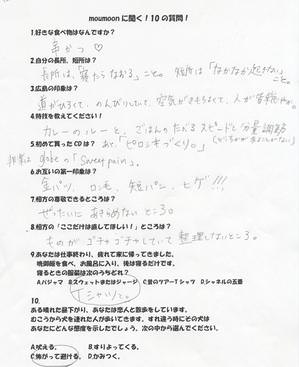 moumoonに聞く！10の質問！
1.好きな食べ物はなんですか？
串かつ♡
2.自分の長所、短所は？
長所は、「寝たらなおる」こと。短所は「なかなか起きない」こと。
3.広島の印象は？
道がひろくて、のんびりしていて、空気がきもちよくて、人が
4.特技を教えてください！
カレーのルーと、ごはんのたべるスピードと分量調節
5.初めて買ったCDは？
あと、「ピロシキづくり。」
邦楽はglobeの「Sweet pain」。
6.お互いの第一印象は？
金パツ、ロン毛、短パン、ヒゲ!!!
7.相方の尊敬できるところは？
ぜったいにあきらめないところ
8.相方の「ここだけは直してほしい！」ところは？
ものがゴチャゴチャしていて整理しないところ。
9.あなたは仕事終わり、疲れて家に帰ってきました。
晩御飯を食べ、お風呂に入り、後は寝るだけです。
寝るときの服装は次のうちどれ？
Aパジャマ Bスウェットまたはジャージ C昔のツアーTシャツ Dシャネルの五番
Tシャツと。
10.
ある晴れた昼下がり、あなたは恋人と散歩をしています。
むこうから犬を連れた人が歩いてきます。すれ違う時にその犬は
あなたにどんな態度を示したでしょう。次の中から選んでください。
A.吠える。 B.すりよってくる。
C.怖がって避ける。 D.かみつく。